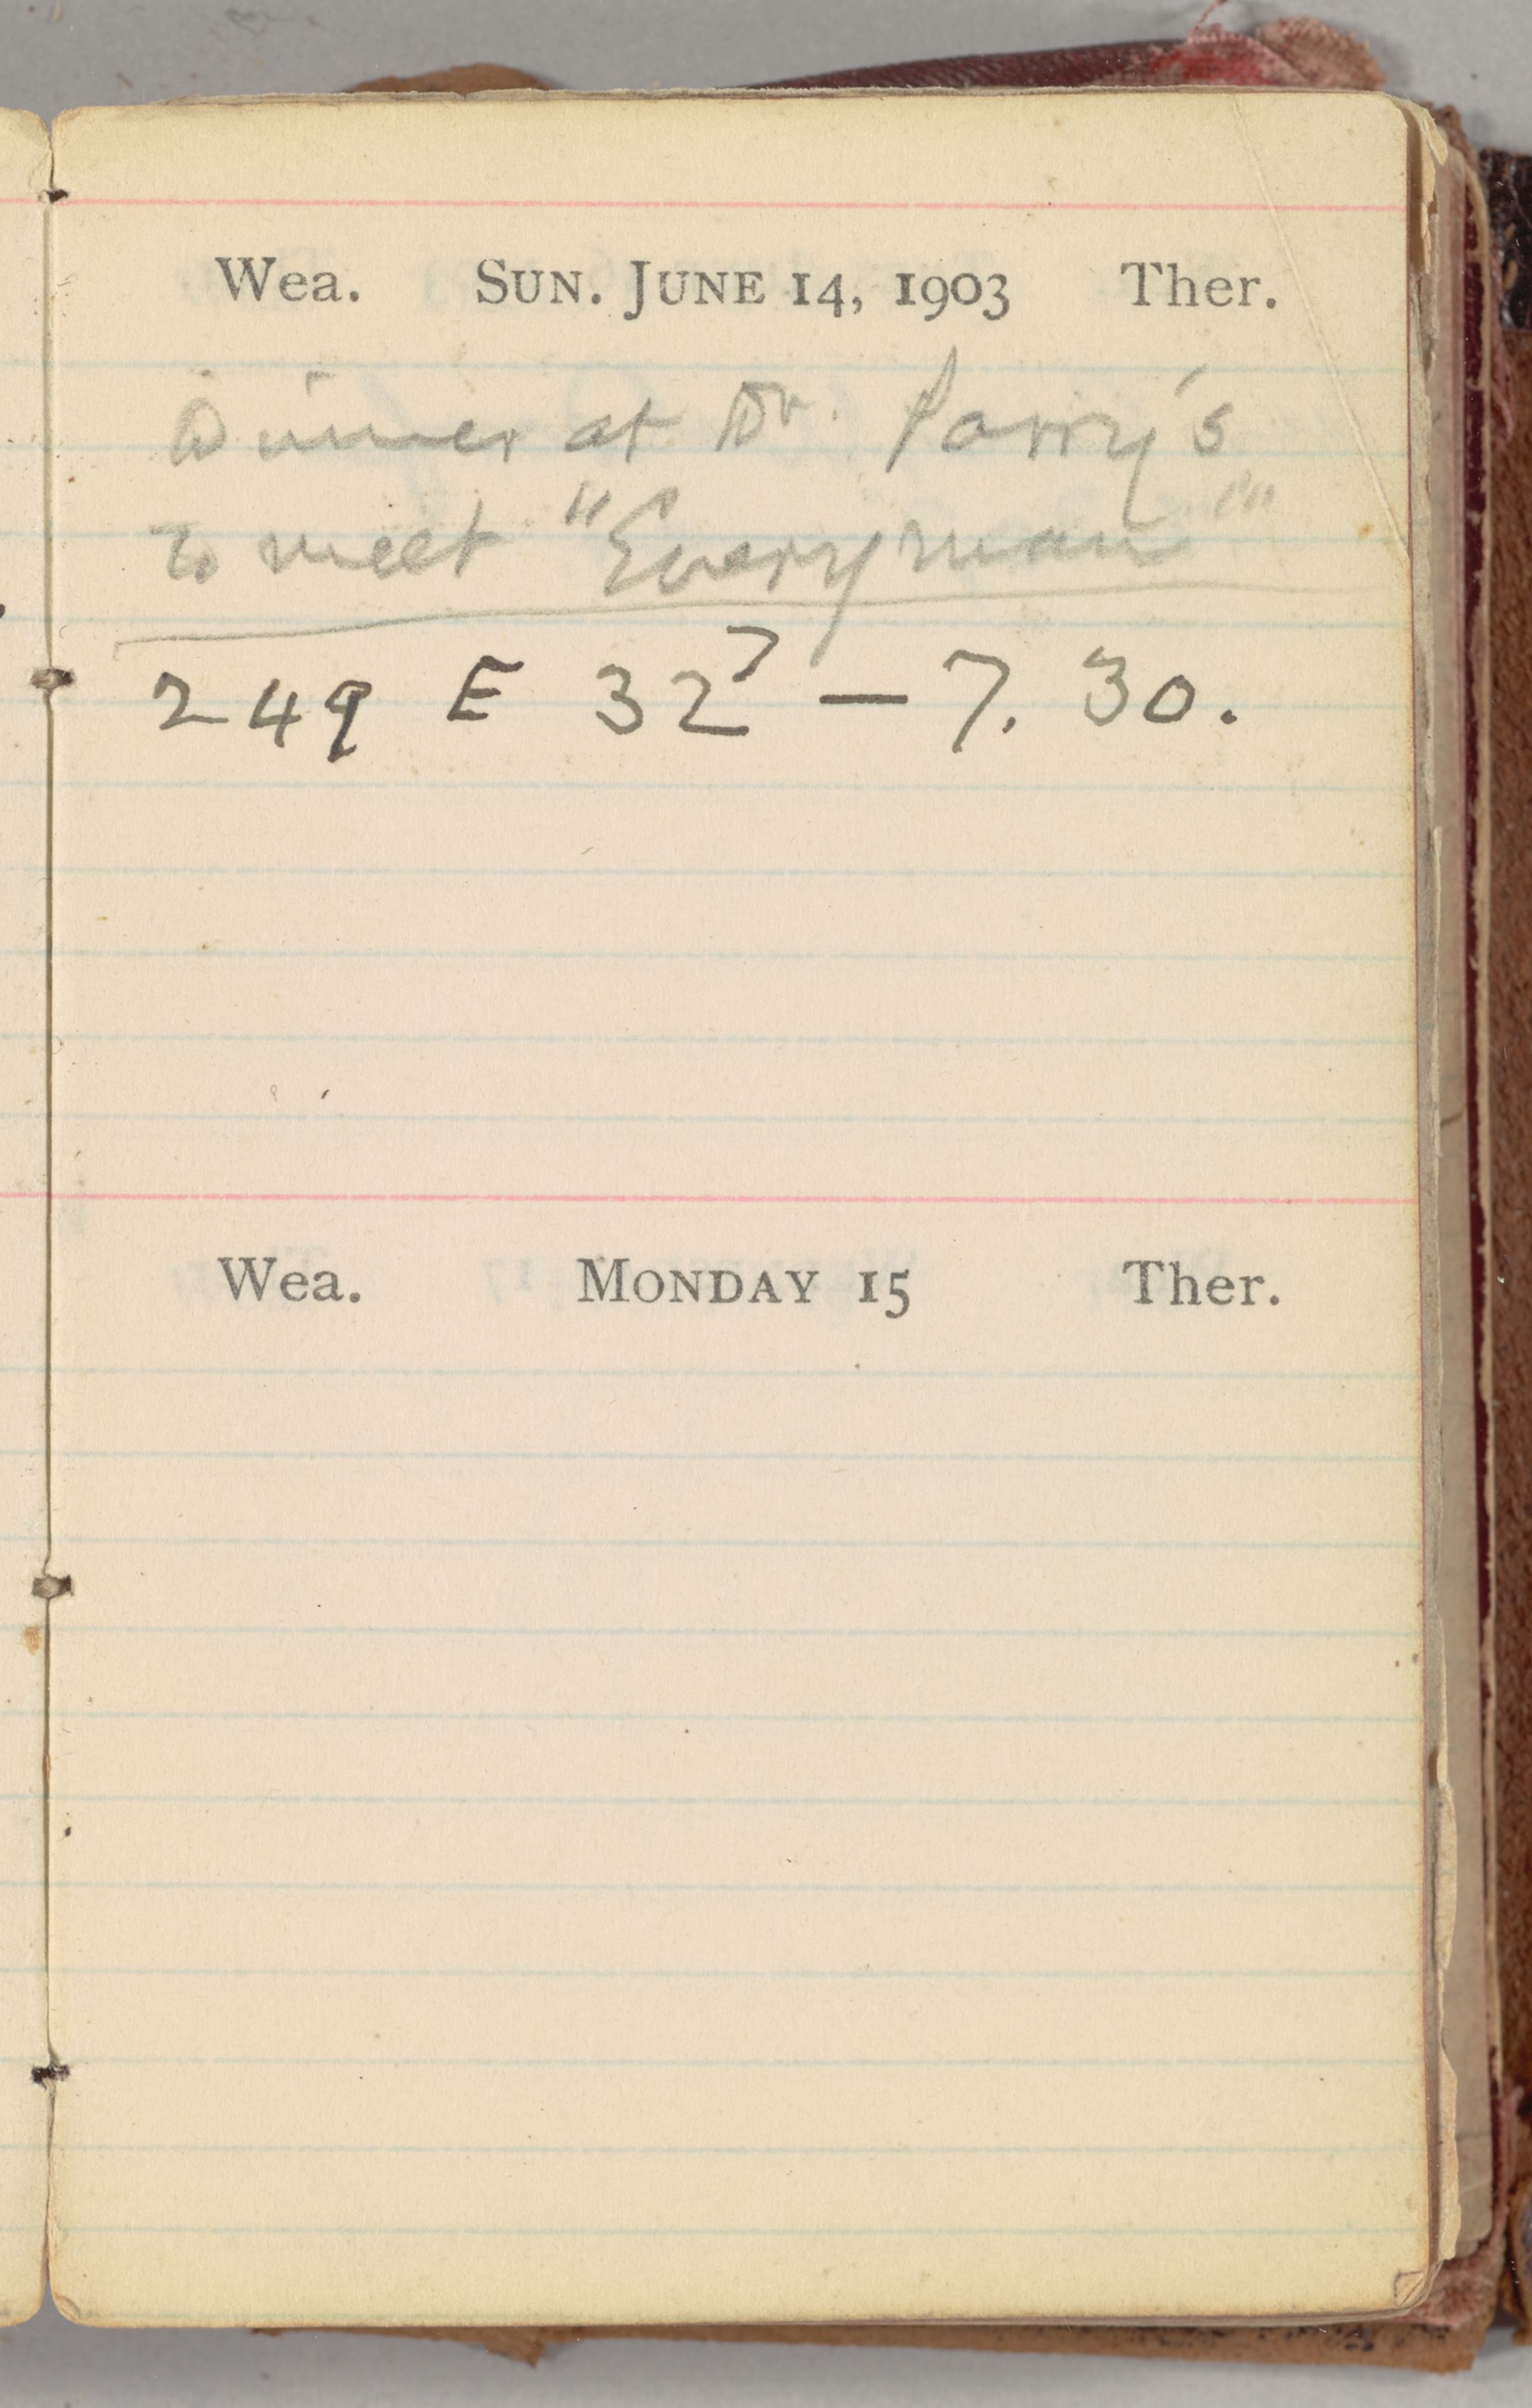 Wea. SUN. JUNE 14, 1903 Ther.
Dinner at Dr. Parry's
to meet "Everyman"
249 E 32 — 7.30.
Wea. MONDAY 15 Ther.